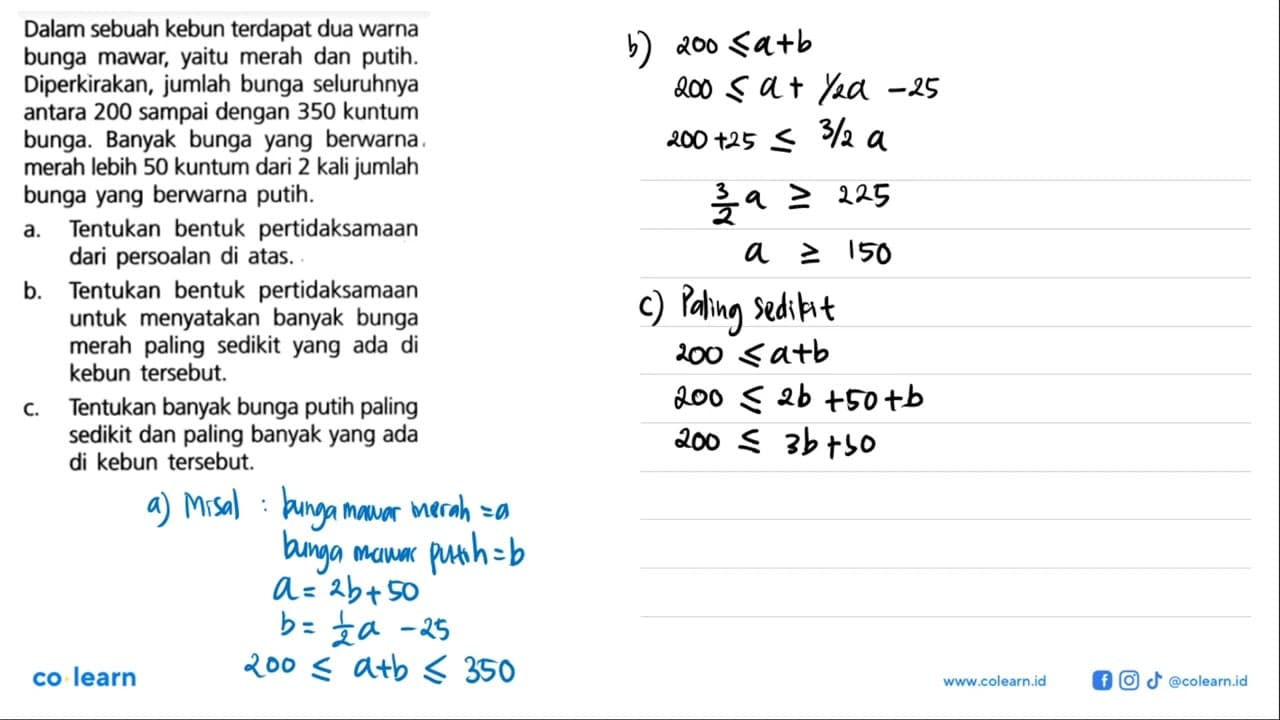 Dalam sebuah kebun terdapat dua warna
bunga mawar, yaitu merah dan putih.
Diperkirakan, jumlah bunga seluruhnya
antara 200 sampai dengan 350 kuntum
bunga. Banyak bunga yang berwarna
merah lebih 50 kuntum dari 2 kali jumlah
bunga yang berwarna putih.
a. Tentukan bentuk pertidaksamaan
dari persoalan di atas.
b. Tentukan bentuk pertidaksamaan
untuk menyatakan banyak bunga
merah paling sedikit yang ada di
kebun tersebut.
c. Tentukan banyak bunga putih paling
sedikit dan paling banyak yang ada
di kebun tersebut.
a) Misal : bunga mawar merah = a
bunga mawar putih = b
a = 2b + 50
b = 1/2 a - 25
200 ≤ a+b ≤ 350
b) 200 ≤ a+b
200 ≤ a + 1/2a - 25
200 + 25 ≤ 3/2 a
3/2 a ≥ 225
a ≥ 150
c) Paling sedikit
200 ≤ a+b
200 ≤ 2b + 50 + b
200 ≤ 3b + 50
co learn
www.colearn.id
@colearn.id